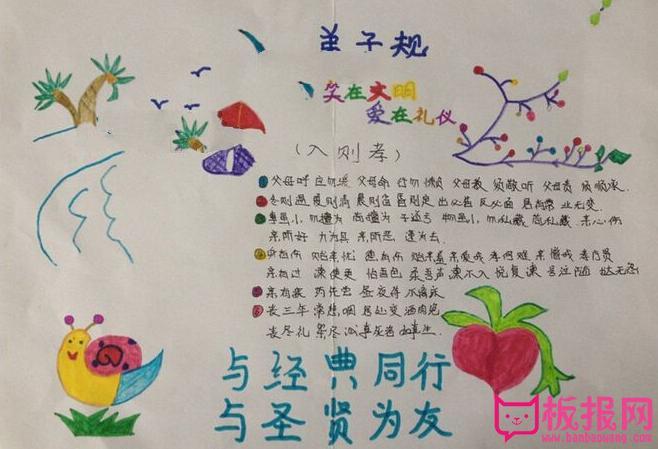 弟子规
笑在文明
爱在礼仪
（入则孝）
父母呼 应勿缓 父母命 行勿懒 父母教 须敬听 父母责 须顺承
冬则温 夏则清 晨则省 昏则定 出必告 反必面 居有常 业无变
事虽小 勿擅为 苟擅为 子道亏 物虽小 勿私藏 苟私藏 亲心伤
亲所好 力为具 亲所恶 谨为去
亲有过 谏使更 怡吾色 柔吾声 谏不入 悦复谏
亲有疾 药先尝 昼夜侍 不离床
丧三年 常悲咽 居处变 酒肉绝
丧尽礼 祭尽诚 事死者 如事生
与经典同行
与圣贤为友
板报网
www.banbaowang.com